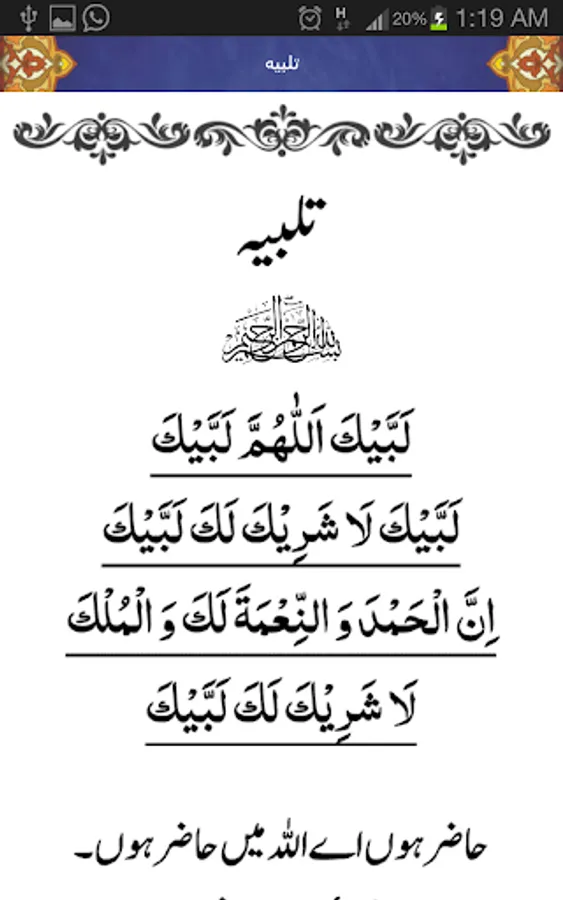 H 20% 1:19 AM
تلبیه
تلبیہ
بسم اللہ الرحمن الرحیم
لَبَّيْكَ اَللّٰهُمَّ لَبَّيْكَ
لَبَّيْكَ لَا شَرِيْكَ لَكَ لَبَّيْكَ
اِنَّ الْحَمْدَ وَ النِّعْمَةَ لَكَ وَ الْمُلْكَ
لَا شَرِيْكَ لَكَ لَبَّيْكَ
حاضر ہوں اے اللہ میں حاضر ہوں۔